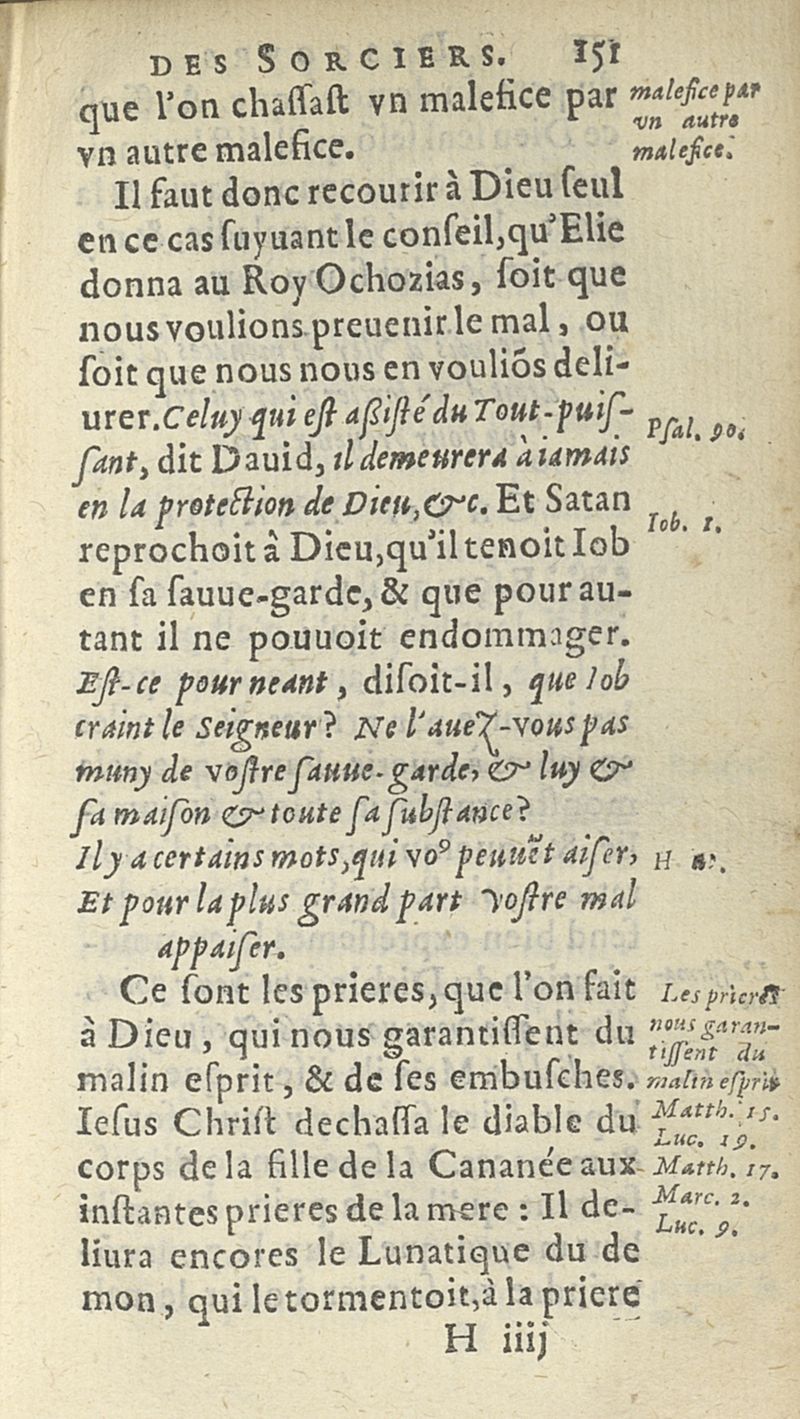 DES SORCIERS. 151
que l'on chaſſaſt vn malefice par
vn autre malefice.
malefice par
vn autre
malefice.
Il faut donc recourir à Dieu ſeul
en ce cas ſuyuant le conſeil, qu'Elie
donna au Roy Ochozias, ſoit que
nous voulions preuenir le mal, ou
ſoit que nous nous en vouliõs deli-
urer. Celuy qui eſt aßiſté du Tout-puiſ-
Pſal. 90.
ſant, dit Dauid, il demeurera à iamais
en la protection de Dieu, &c. Et Satan
Iob. 1.
reprochoit à Dieu, qu'il tenoit Iob
en ſa ſauue-garde, & que pour au-
tant il ne pouuoit endommager.
Eſt-ce pour neant, diſoit-il, que Iob
craint le Seigneur? Ne l'auez-vous pas
muny de voſtre ſauue-garde, & luy &
ſa maiſon & toute ſa ſubſtance?
Il y a certains mots, qui voꝰ peuuẽt aiſer,
H
Et pour la plus grand part voſtre mal
appaiſer.
Ce ſont les prieres, que l'on fait
à Dieu, qui nous garantiſſent du
malin eſprit, & de ſes embuſches.
Les prieres
nous garan-
tiſſent du
malin eſprit
Ieſus Chriſt dechaſſa le diable du
corps de la fille de la Cananée aux
inſtantes prieres de la mere : Il de-
Matth. 15.
Luc. 19.
Matth. 17.
Marc. 2.
Luc. 9.
liura encores le Lunatique du de
mon, qui le tormentoit, à la priere
H iiij